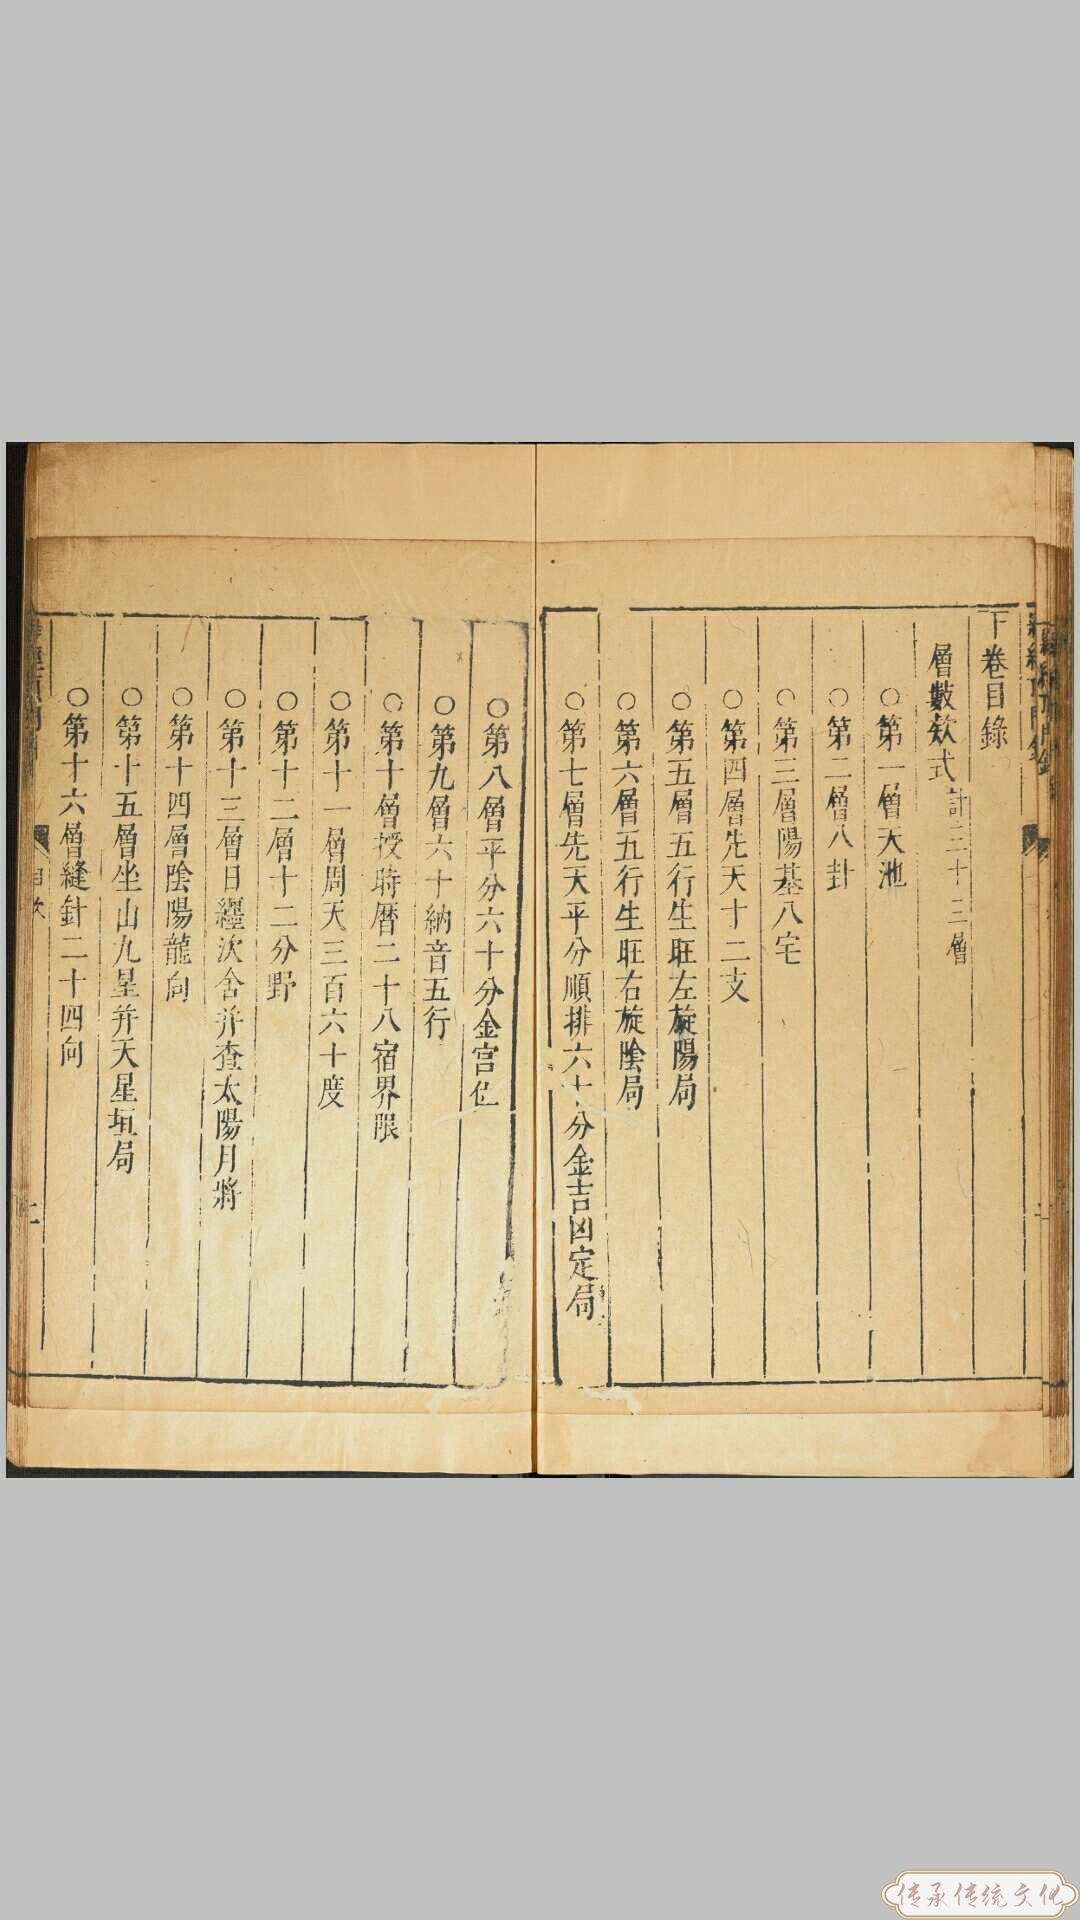 下卷目錄
層數欵式計三十三層
○第一層天池
○第二層八卦
○第三層陽基八宅
○第四層先天十二支
○第五層五行生旺左旋陽局
○第六層五行生旺右旋陰局
○第七層先天平分順排六十分金吉凶定局
○第八層平分六十分金宫位
○第九層六十納音五行
○第十層授時曆二十八宿界限
○第十一層周天三百六十度
○第十二層十二分野
○第十三層日纏次舍并查太陽月將
○第十四層陰陽龍向
○第十五層坐山九星并天星垣局
○第十六層縫針二十四向
目次
二
传承传统文化